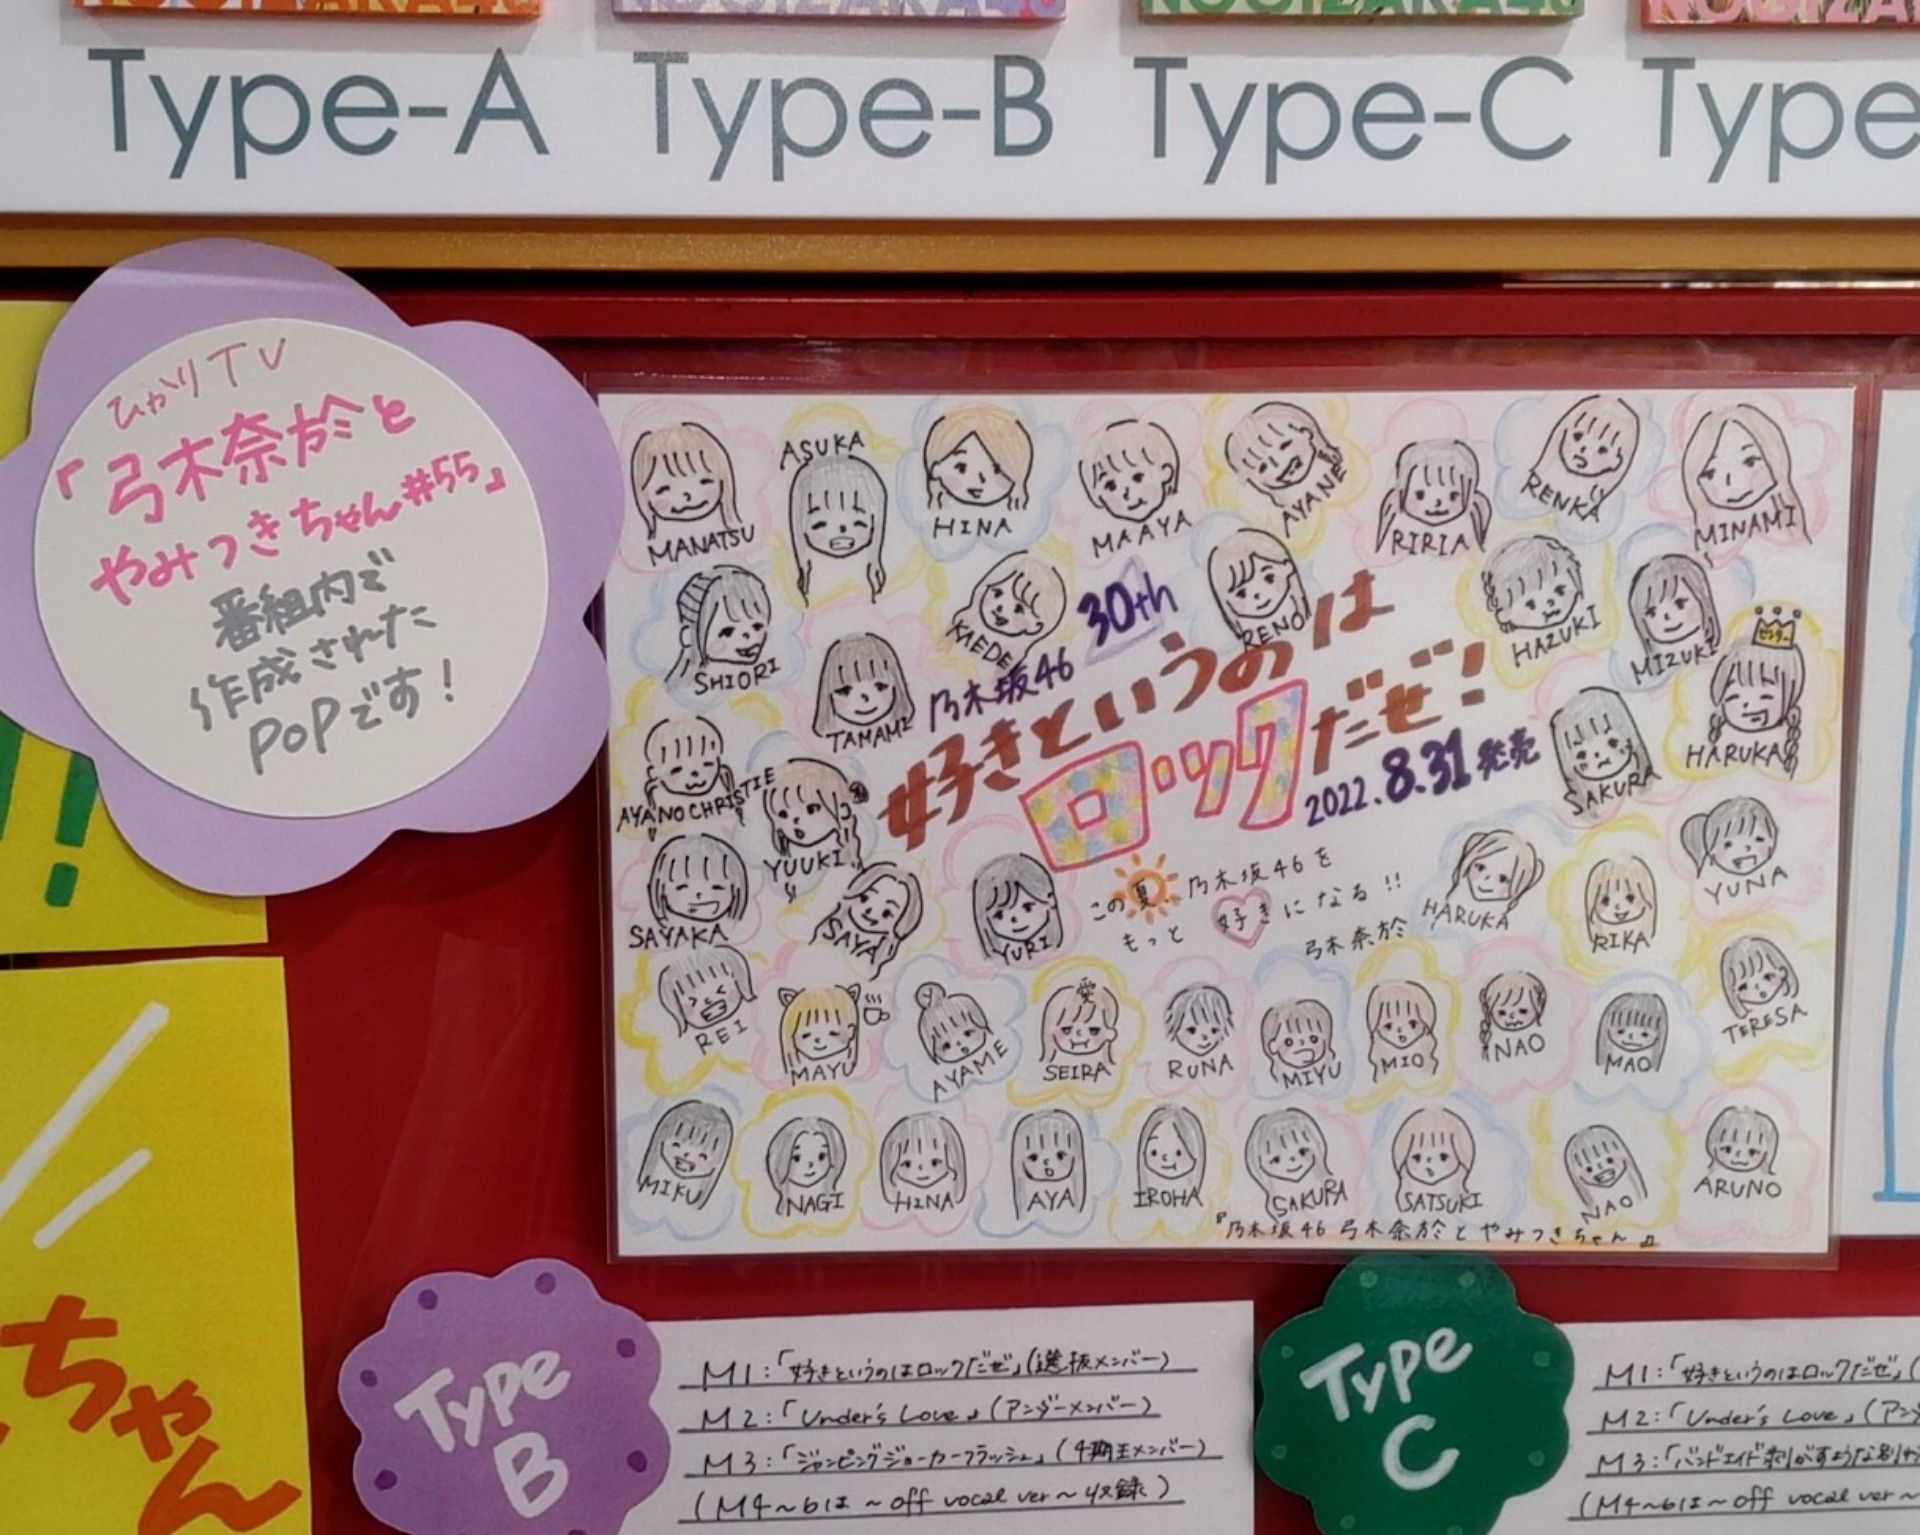 NOGIZAKA46
NOGIZAKA46
NOGIZAKA46
NOGIZA
Type-A
Type-B
Type-C
Type
ひかりTV
「弓木奈於と
やみつきちゃん#55」
番組内で
作成された
POPです!
MANATSU
ASUKA
HINA
MAAYA
AYANE
RIRIA
RENKA
MINAMI
SHIORI
TAMAMI
KAEDE
RENO
HAZUKI
MIZUKI
センター
HARUKA
乃木坂46
30th
#好きというのは
ロックだぜ!
2022.8.31発売
AYANOCHRISTIE
YUUKI
SAKURA
SAYAKA
SAYA
YURI
この夏、乃木坂46を
もっと 好きになる!!
弓木奈於
HARUKA
RIKA
YUNA
REI
MAYU
AYAME
愛
SEIRA
RUNA
MIYU
MIO
NAO
MAO
TERESA
MIKU
NAGI
HINA
AYA
IROHA
SAKURA
SATSUKI
NAO
ARUNO
『乃木坂46 弓木奈於とやみつきちゃん』
!!
ちゃん
Type
B
M1:「好きというのはロックだぜ」(選抜メンバー)
M2:「Under's Love」(アンダーメンバー)
M3:「ジャンピングジョーカーフラッシュ」(4期生メンバー)
(M4~6は~off vocal ver~収録)
Type
C
M1:「好きというのはロックだぜ」(
M2:「Under's Love」(アン
M3:「バンドエイド剥がすような別れ
(M4~6は~off vocal ver~